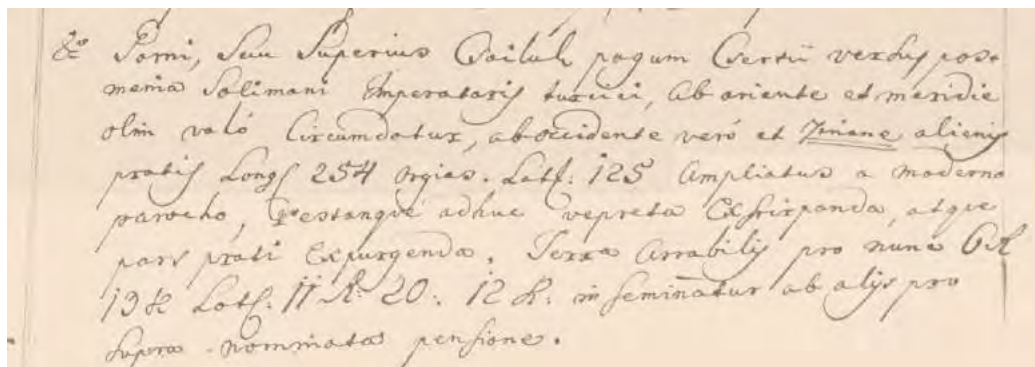 &c Gorni, Seu Superius Csitluk pagum Csertü versus post
meniã Solimani Imperatoris turcici, Ab oriente et meridie
olim való Circumdatur, ab occidente veró et Zinane alienis
pratis Long: 254 orgias. Lat: 125 Ampliatus a moderno
parocho, restanque adhuc vepreta Exstirpanda, atque
pars prati Expurgenda. Terra Arrabilis pro nunc
Lat: 11 20: 12 inseminatur ab alys pro
supra nominata pensione.